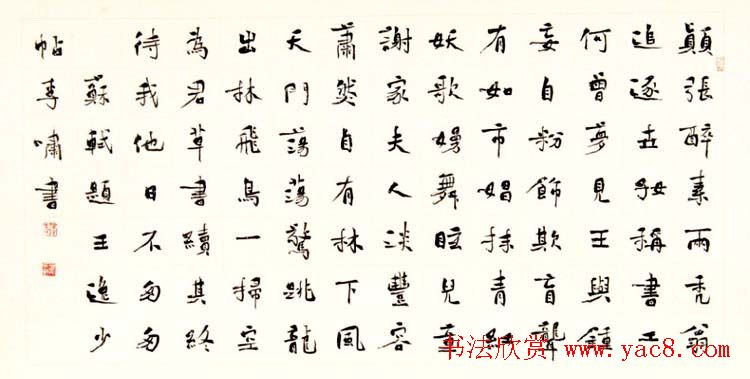 顛張醉素兩禿翁
追逐世好稱書工
何曾夢見王與鍾
妄自粉飾欺盲聾
有如市娼抹青紅
妖歌嫚舞眩兒童
謝家夫人淡豐容
蕭然自有林下風
天門蕩蕩驚跳龍
出林飛鳥一掃空
為君草書續其終
待我他日不匆匆
蘇軾題王逸少
帖李嘯書
书法欣赏 www.yac8.com